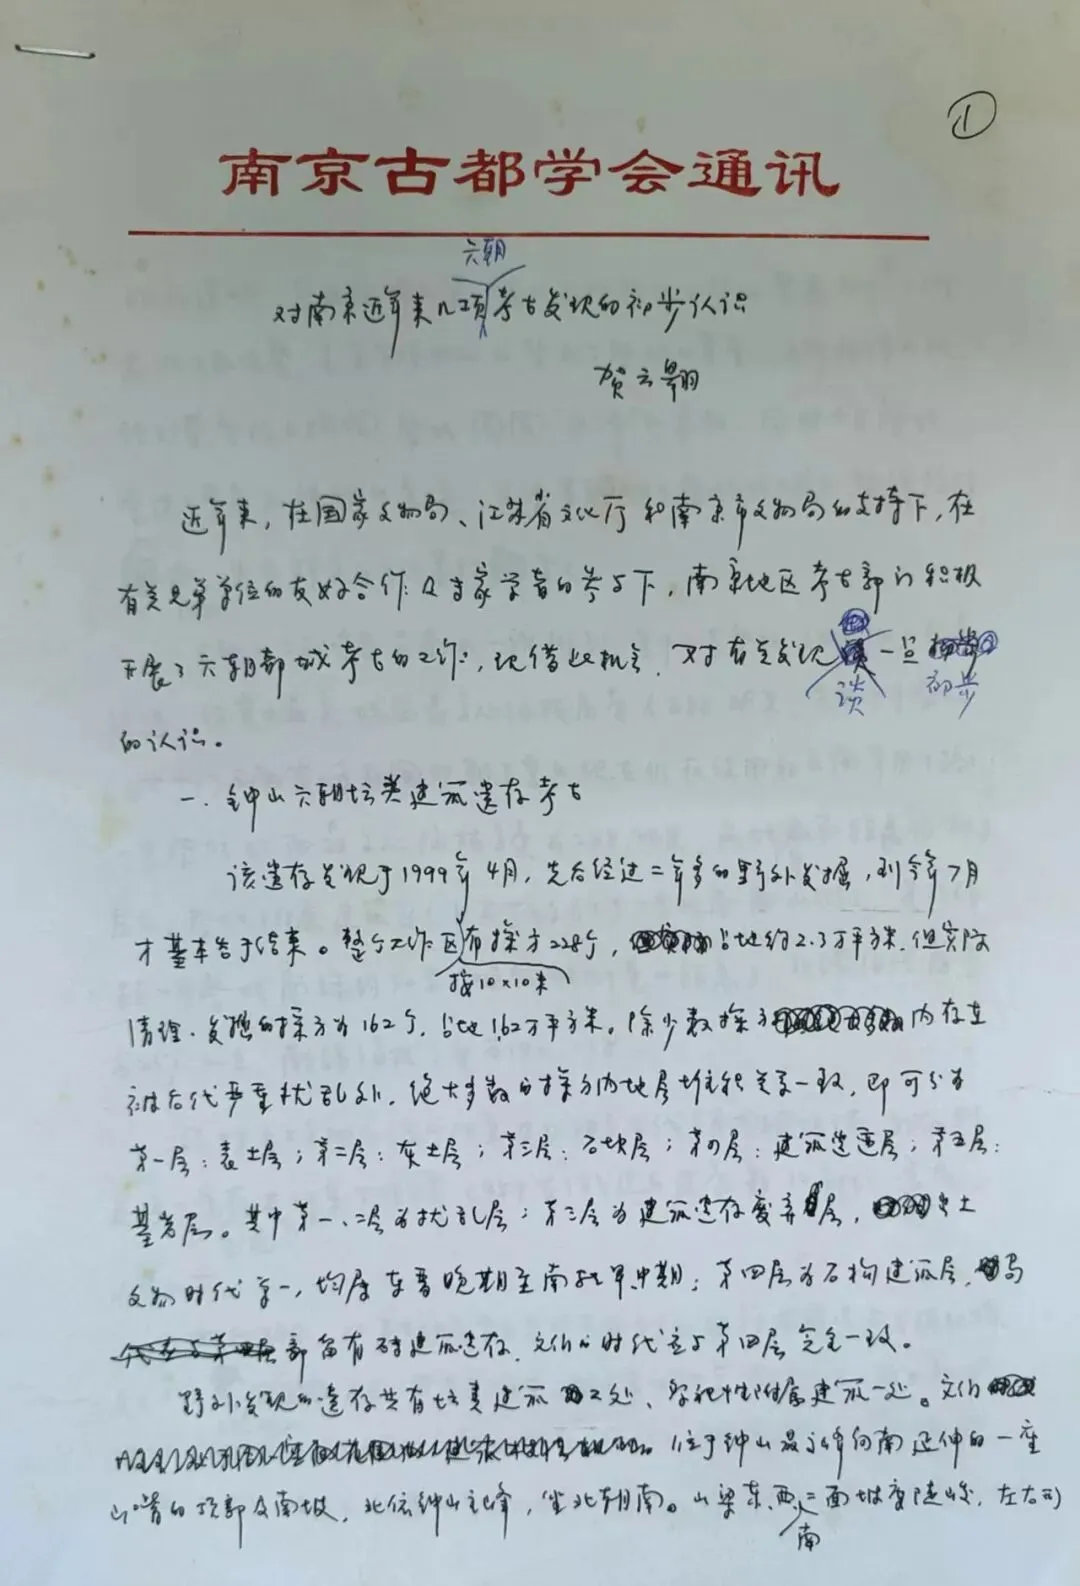 ①
南京古都学会通讯
六朝
对南京近年来几项考古发现的初步认识
贺云翱
近年来，在国家文物局、江苏省文化厅和南京市文物局的支持下，在
有关兄弟单位的友好合作及专家学者的参与下，南京地区考古部门积极
开展了六朝都城考古的工作，现借此机会，对有关发现谈一点初步
的认识。
一、钟山六朝坛类建筑遗存考古
该遗存发现于1999年4月，先后经过二年多的野外发掘，到今年7月
才基本告于结束。整个工作区布探方228个，占地约2.3万平方米，但实际
按10×10米
清理、发掘的探方为162个，占地1.62万平方米。除少数探方内存在
被后代严重扰乱外，绝大多数的探方内地层堆积关系一致，即可分为
第一层：表土层；第二层：灰土层；第三层：石块层；第四层：建筑遗迹层；第五层：
基岩层。其中第一、二层为扰乱层；第三层为建筑遗存废弃层，出土
文物时代单一，均属东晋晚期至南朝早中期；第四层为石构建筑层，局
部留有砖建筑遗存，文化时代应与第四层完全一致。
野外发现的遗存共有坛类建筑2处、祭祀性附属建筑一处。
位于钟山最高峰向南延伸的一座
山嘴的顶部及南坡，北依钟山主峰，坐北朝南。山梁东、西、南三面坡度陡峻，左右可